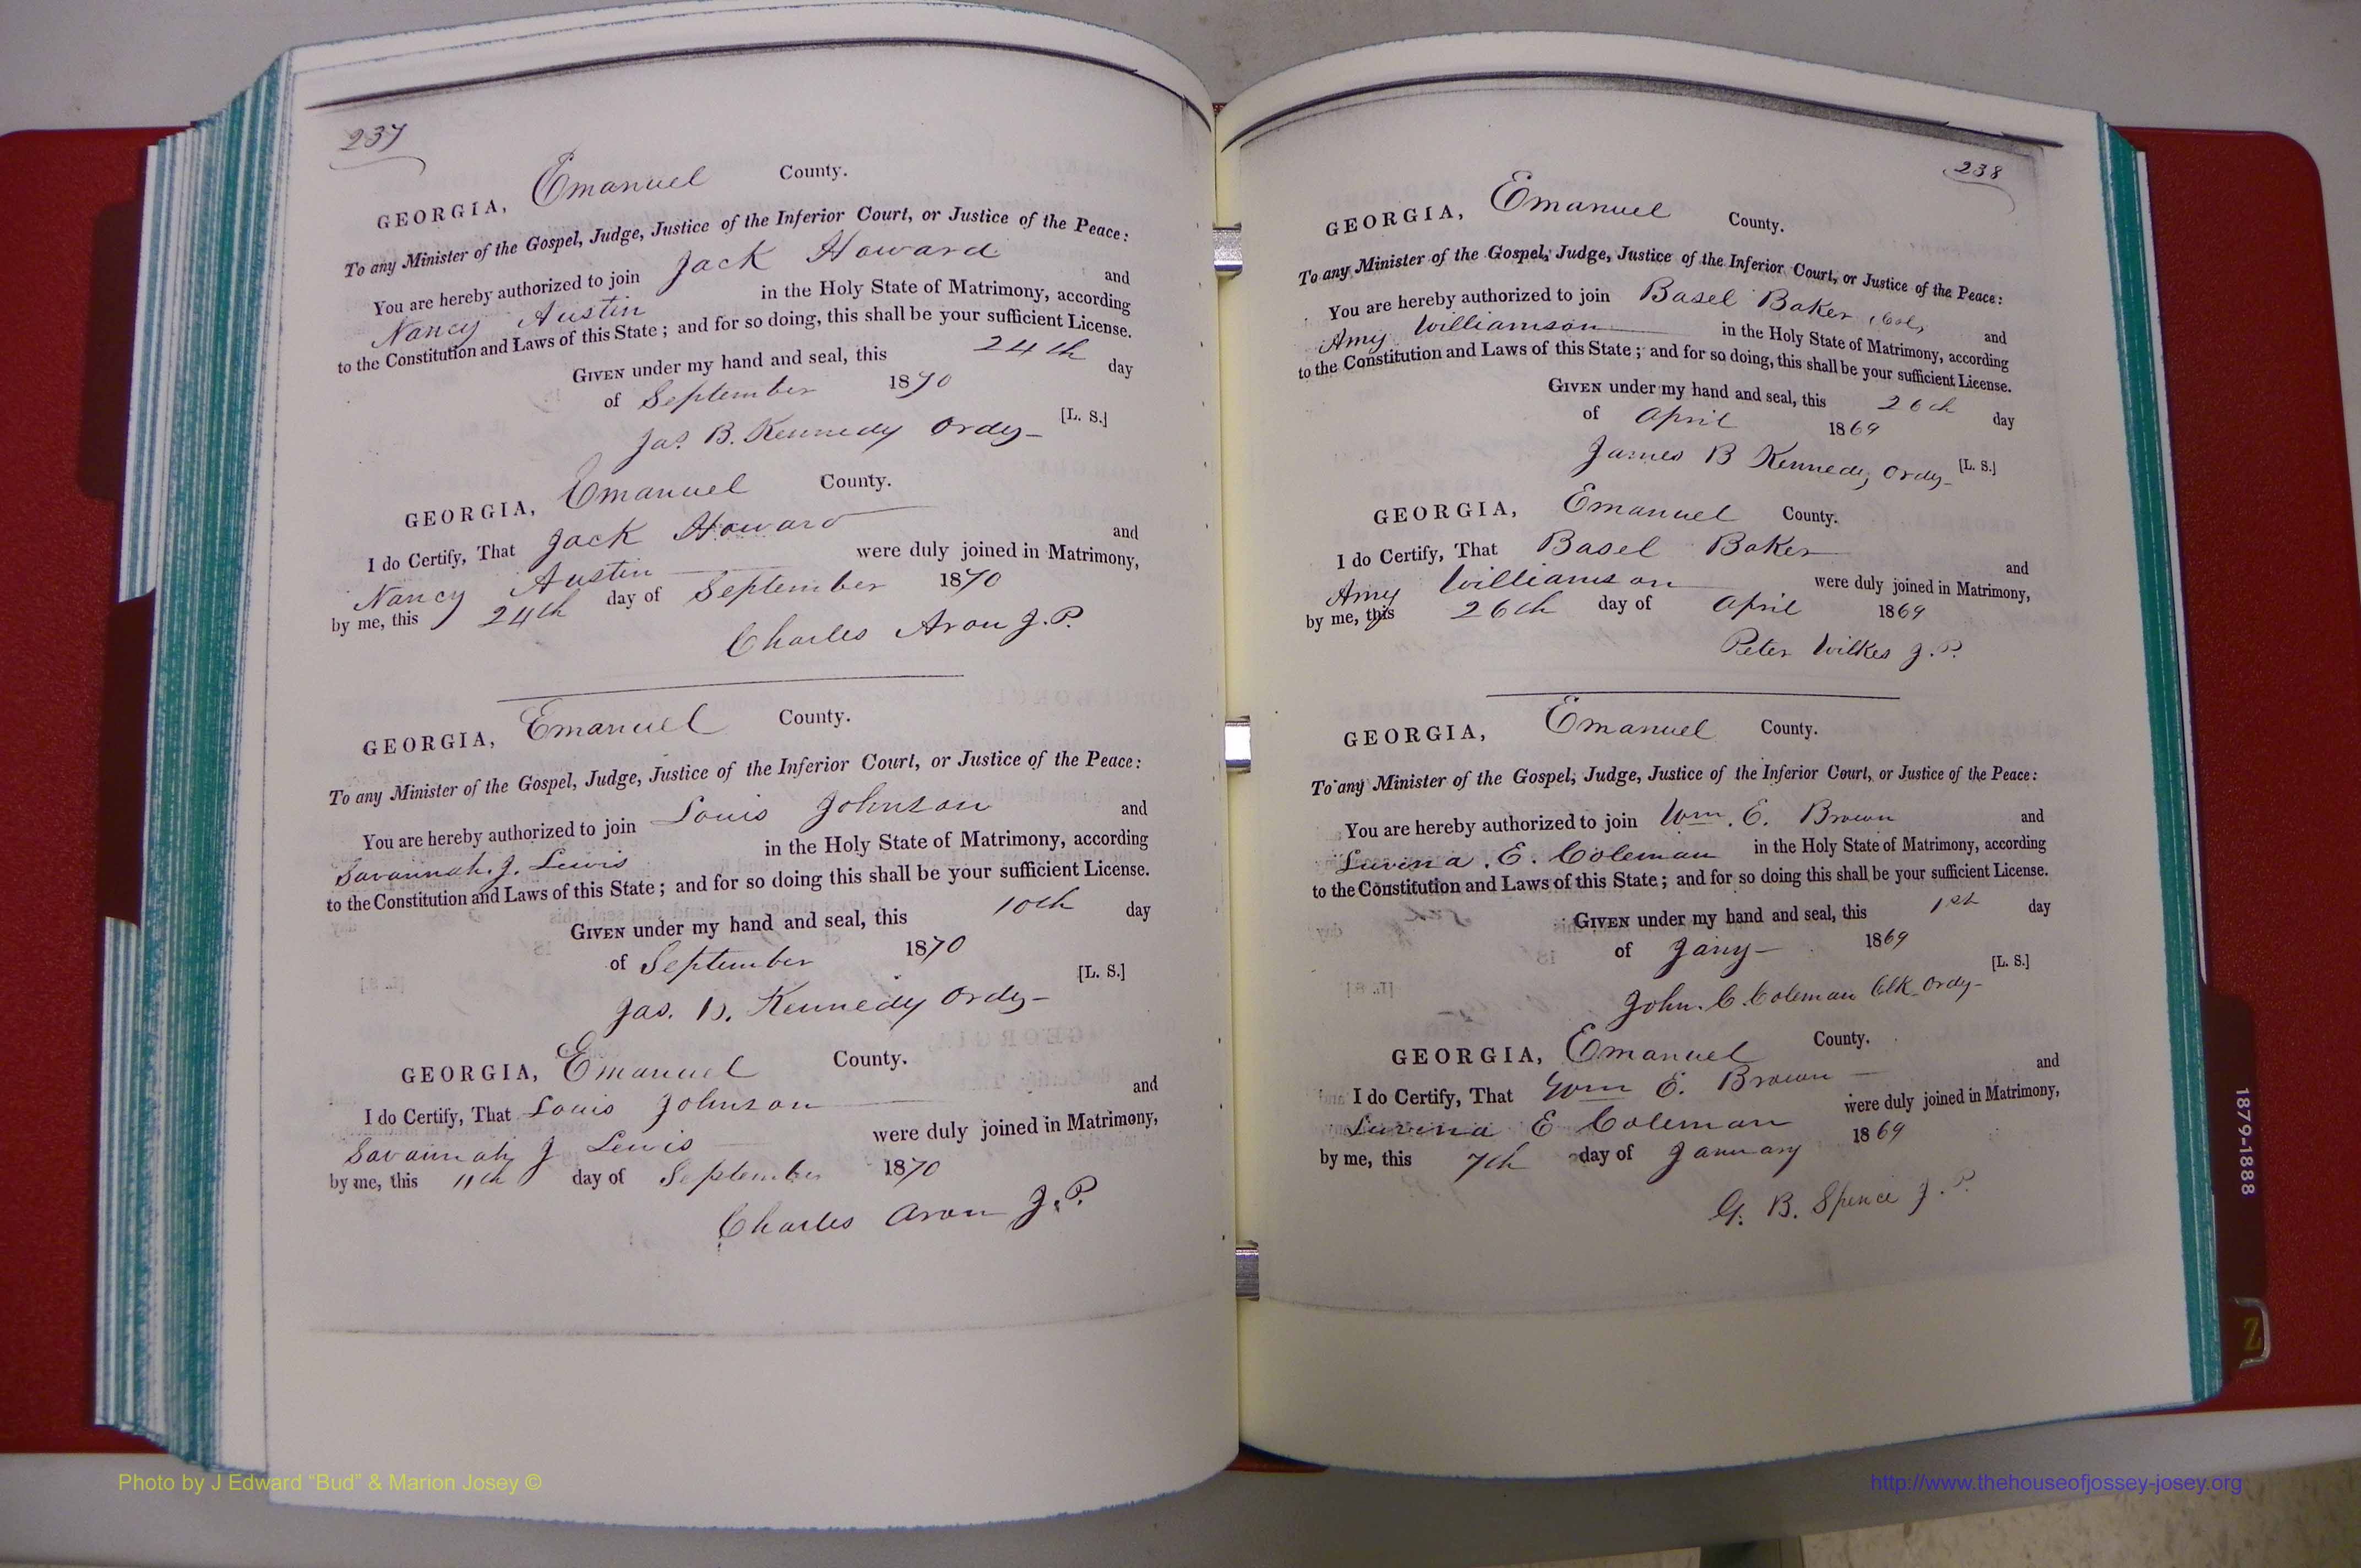 237
GEORGIA, Emanuel County.
To any Minister of the Gospel, Judge, Justice of the Inferior Court, or Justice of the Peace:
You are hereby authorized to join Jack Howard and
Nancy Austin in the Holy State of Matrimony, according
to the Constitution and Laws of this State; and for so doing, this shall be your sufficient License.
GIVEN under my hand and seal, this 24th day
of September 1870
Jas. B. Kennedy Ordy- [L. S.]
GEORGIA, Emanuel County.
I do Certify, That Jack Howard and
Nancy Austin were duly joined in Matrimony,
by me, this 24th day of September 1870
Charles Aron J.P.
GEORGIA, Emanuel County.
To any Minister of the Gospel, Judge, Justice of the Inferior Court, or Justice of the Peace:
You are hereby authorized to join Louis Johnson and
Savannah. J. Lewis in the Holy State of Matrimony, according
to the Constitution and Laws of this State; and for so doing this shall be your sufficient License.
GIVEN under my hand and seal, this 10th day
of September 1870
Jas. B. Kennedy Ordy- [L. S.]
GEORGIA, Emanuel County.
I do Certify, That Louis Johnson and
Savannah J Lewis were duly joined in Matrimony,
by me, this 11th day of September 1870
Charles Aron J.P.
238
GEORGIA, Emanuel County.
To any Minister of the Gospel, Judge, Justice of the Inferior Court, or Justice of the Peace:
You are hereby authorized to join Basel Baker (Col) and
Amy Williamson in the Holy State of Matrimony, according
to the Constitution and Laws of this State; and for so doing, this shall be your sufficient License.
GIVEN under my hand and seal, this 26th day
of April 1869
James B Kennedy Ordy- [L. S.]
GEORGIA, Emanuel County.
I do Certify, That Basel Baker and
Amy Williamson were duly joined in Matrimony,
by me, this 26th day of April 1869
Peter Wilkes J.P.
GEORGIA, Emanuel County.
To any Minister of the Gospel, Judge, Justice of the Inferior Court, or Justice of the Peace:
You are hereby authorized to join Wm. E. Brown and
Luvina. E. Coleman in the Holy State of Matrimony, according
to the Constitution and Laws of this State; and for so doing this shall be your sufficient License.
GIVEN under my hand and seal, this 1st day
of Jany- 1869
John. C. Coleman Clk Ordy- [L. S.]
GEORGIA, Emanuel County.
I do Certify, That Wm E. Brown and
Luvina E Coleman were duly joined in Matrimony,
by me, this 7th day of January 1869
G. B. Spence J.P.
1879-1888
Z
Photo by J Edward “Bud” & Marion Josey ©
http://www.thehouseofjossey-josey.org